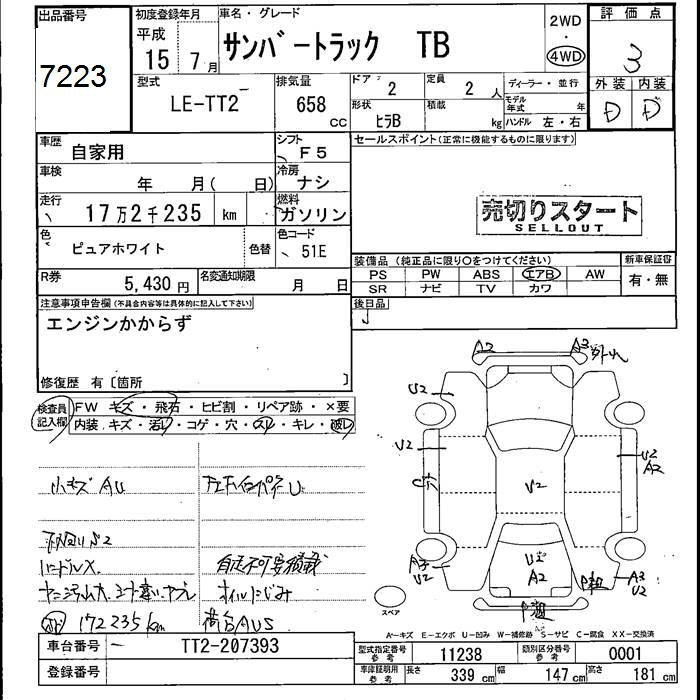 出品番号
7223
初度登録年月
平成
15年 7月
車名・グレード
サンバートラック TB
2WD
・
4WD
評価点
3
外装 内装
D D
型式
LE-TT2
排気量
658 cc
ドア 2
定員 2 人
形状 ヒラB
積載 kg
ディーラー・並行
モデル年式 年
ハンドル 左・右
車歴
自家用
シフト
F5
車検
年 月( 日)
冷房
ナシ
走行
17万2千235 km
燃料
ガソリン
色
ピュアホワイト
色替
色コード
51E
R券
5,430円
名変通知期限
月 日
セールスポイント(正常に機能するものに限ります)
売切りスタート
SELLOUT
装備品 (純正品に限り○をつけてください)
PS PW ABS エアB AW
SR ナビ TV カワ
新車保証書
有・無
後日品
注意事項申告欄(不具合内容等は具体的に記入して下さい)
エンジンかからず
修復歴 有〔箇所 〕
検査員
記入欄
FW キズ・飛石・ヒビ割・リペア跡・×要
内装 キズ・汚レ・コゲ・穴・スレ・キレ・破レ
小キズ AU
ハンドルス
自走不可要積載
オイルにじみ
172235km
荷台AUS
A2
A3
外れ
U2
U2
U2
A2
U2
A2
A3
U2
A3
U2
スペア
A-キズ E-エクボ U-凹み W-補修跡 S-サビ C-腐食 XX-交換済
車台番号
TT2-207393
登録番号
型式指定番号
参考
11238
類別区分番号
参考
0001
車庫証明用
参考
長さ 339 cm
幅 147 cm
高さ 181 cm